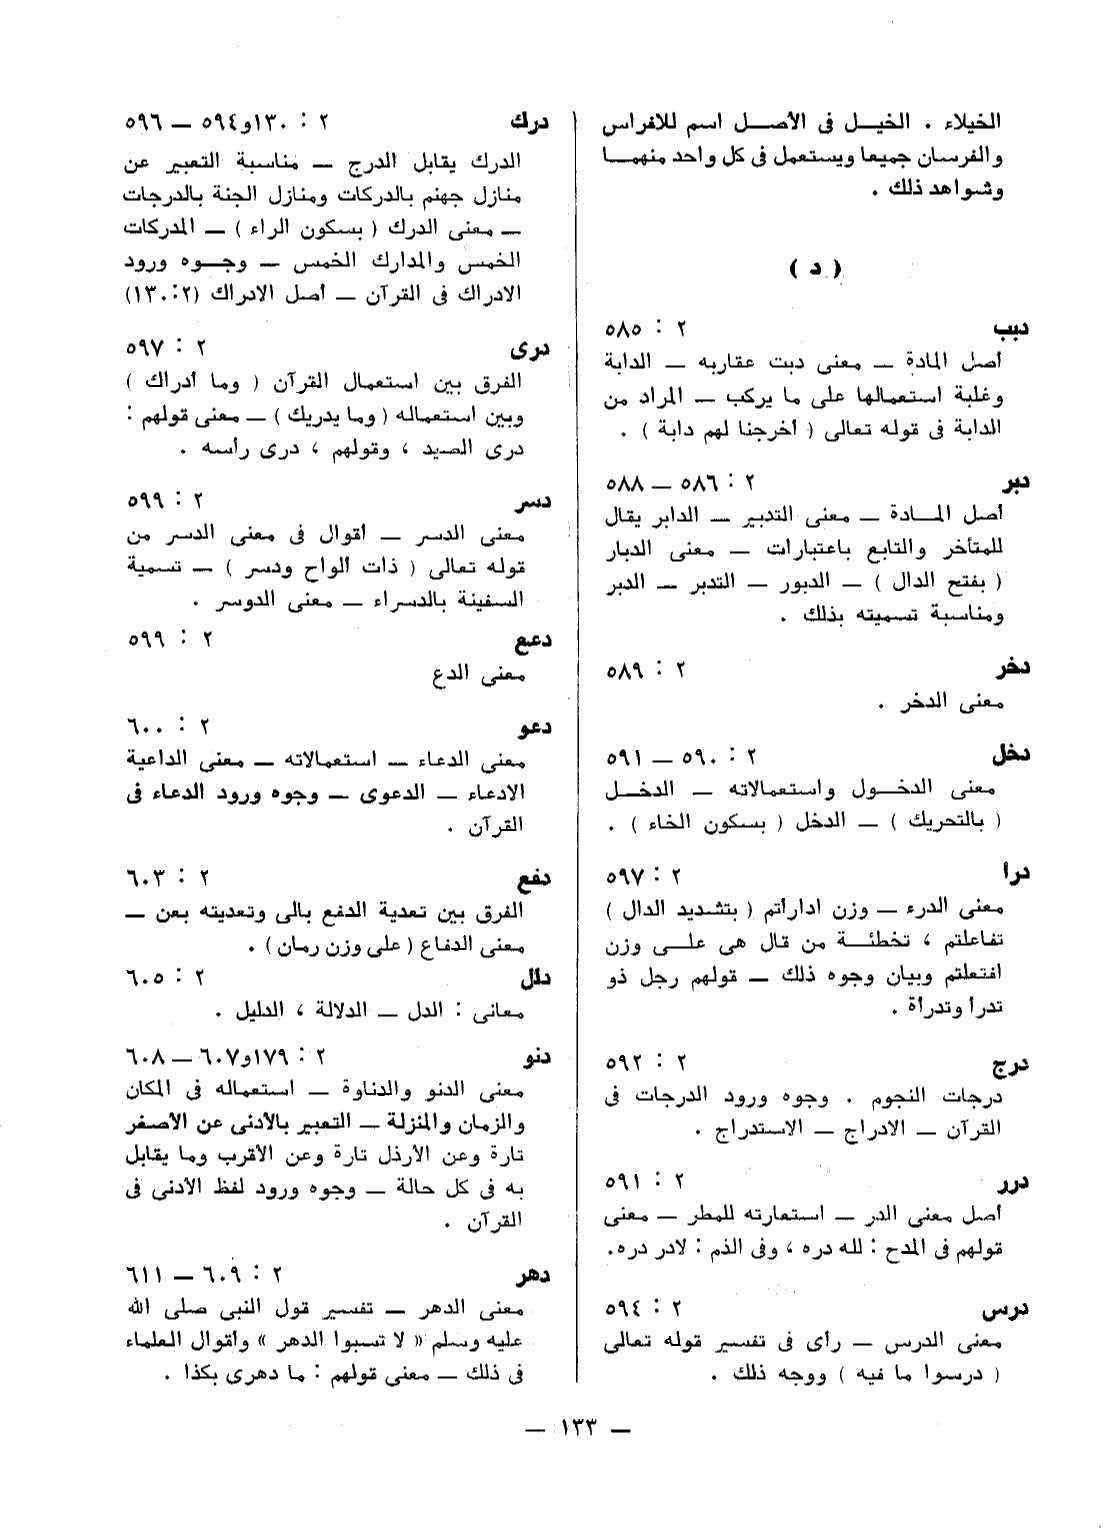 الخيلاء . الخيل فى الأصل اسم للافراس
والفرسان جميعا ويستعمل فى كل واحد منهما
وشواهد ذلك .
( د )
دبب ٢ : ٥٨٥
أصل المادة — معنى دبت عقاربه — الدابة
وغلبة استعمالها على ما يركب — المراد من
الدابة فى قوله تعالى ( أخرجنا لهم دابة ) .
دبر ٢ : ٥٨٦ — ٥٨٨
أصل المادة — معنى التدبير — الدابر يقال
للمتأخر والتابع باعتبارات — معنى الدبار
( بفتح الدال ) — الدبور — التدبر — الدبر
ومناسبة تسميته بذلك .
دخر ٢ : ٥٨٩
معنى الدخر .
دخل ٢ : ٥٩٠ — ٥٩١
معنى الدخول واستعمالاته — الدخل
( بالتحريك ) — الدخل ( بسكون الخاء ) .
درأ ٢ : ٥٩٧
معنى الدرء — وزن ادارأتم ( بتشديد الدال )
تفاعلتم ، تخطئة من قال هى على وزن
افتعلتم وبيان وجوه ذلك — قولهم رجل ذو
تدرأ وتدرأة .
درج ٢ : ٥٩٢
درجات النجوم . وجوه ورود الدرجات فى
القرآن — الادراج — الاستدراج .
درر ٢ : ٥٩١
أصل معنى الدر — استعارته للمطر — معنى
قولهم فى المدح : لله دره ، وفى الذم : لادر دره.
درس ٢ : ٥٩٤
معنى الدرس — رأى فى تفسير قوله تعالى
( درسوا ما فيه ) ووجه ذلك .
درك ٢ : ١٣٠و٥٩٤ — ٥٩٦
الدرك يقابل الدرج — مناسبة التعبير عن
منازل جهنم بالدركات ومنازل الجنة بالدرجات
— معنى الدرك ( بسكون الراء ) — المدركات
الخمس والمدارك الخمس — وجوه ورود
الادراك فى القرآن — أصل الادراك (١٣٠:٢)
درى ٢ : ٥٩٧
الفرق بين استعمال القرآن ( وما أدراك )
وبين استعماله ( وما يدريك ) — معنى قولهم :
درى الصيد ، وقولهم ، درى رأسه .
دسر ٢ : ٥٩٩
معنى الدسر — أقوال فى معنى الدسر من
قوله تعالى ( ذات الواح ودسر ) — تسمية
السفينة بالدسراء — معنى الدوسر .
دعع ٢ : ٥٩٩
معنى الدع
دعو ٢ : ٦٠٠
معنى الدعاء — استعمالاته — معنى الداعية
الادعاء — الدعوى — وجوه ورود الدعاء فى
القرآن .
دفع ٢ : ٦٠٣
الفرق بين تعدية الدفع بالى وتعديته بعن —
معنى الدفاع ( على وزن رمان ) .
دلل ٢ : ٦٠٥
معانى : الدل — الدلالة ، الدليل .
دنو ٢ : ١٧٩و٦٠٧ — ٦٠٨
معنى الدنو والدناوة — استعماله فى المكان
والزمان والمنزلة — التعبير بالأدنى عن الأصغر
تارة وعن الأرذل تارة وعن الأقرب وما يقابل
به فى كل حالة — وجوه ورود لفظ الأدنى فى
القرآن .
دهر ٢ : ٦٠٩ — ٦١١
معنى الدهر — تفسير قول النبى صلى الله
عليه وسلم « لا تسبوا الدهر » وأقوال العلماء
فى ذلك — معنى قولهم : ما دهرى بكذا .
— ١٣٣ —